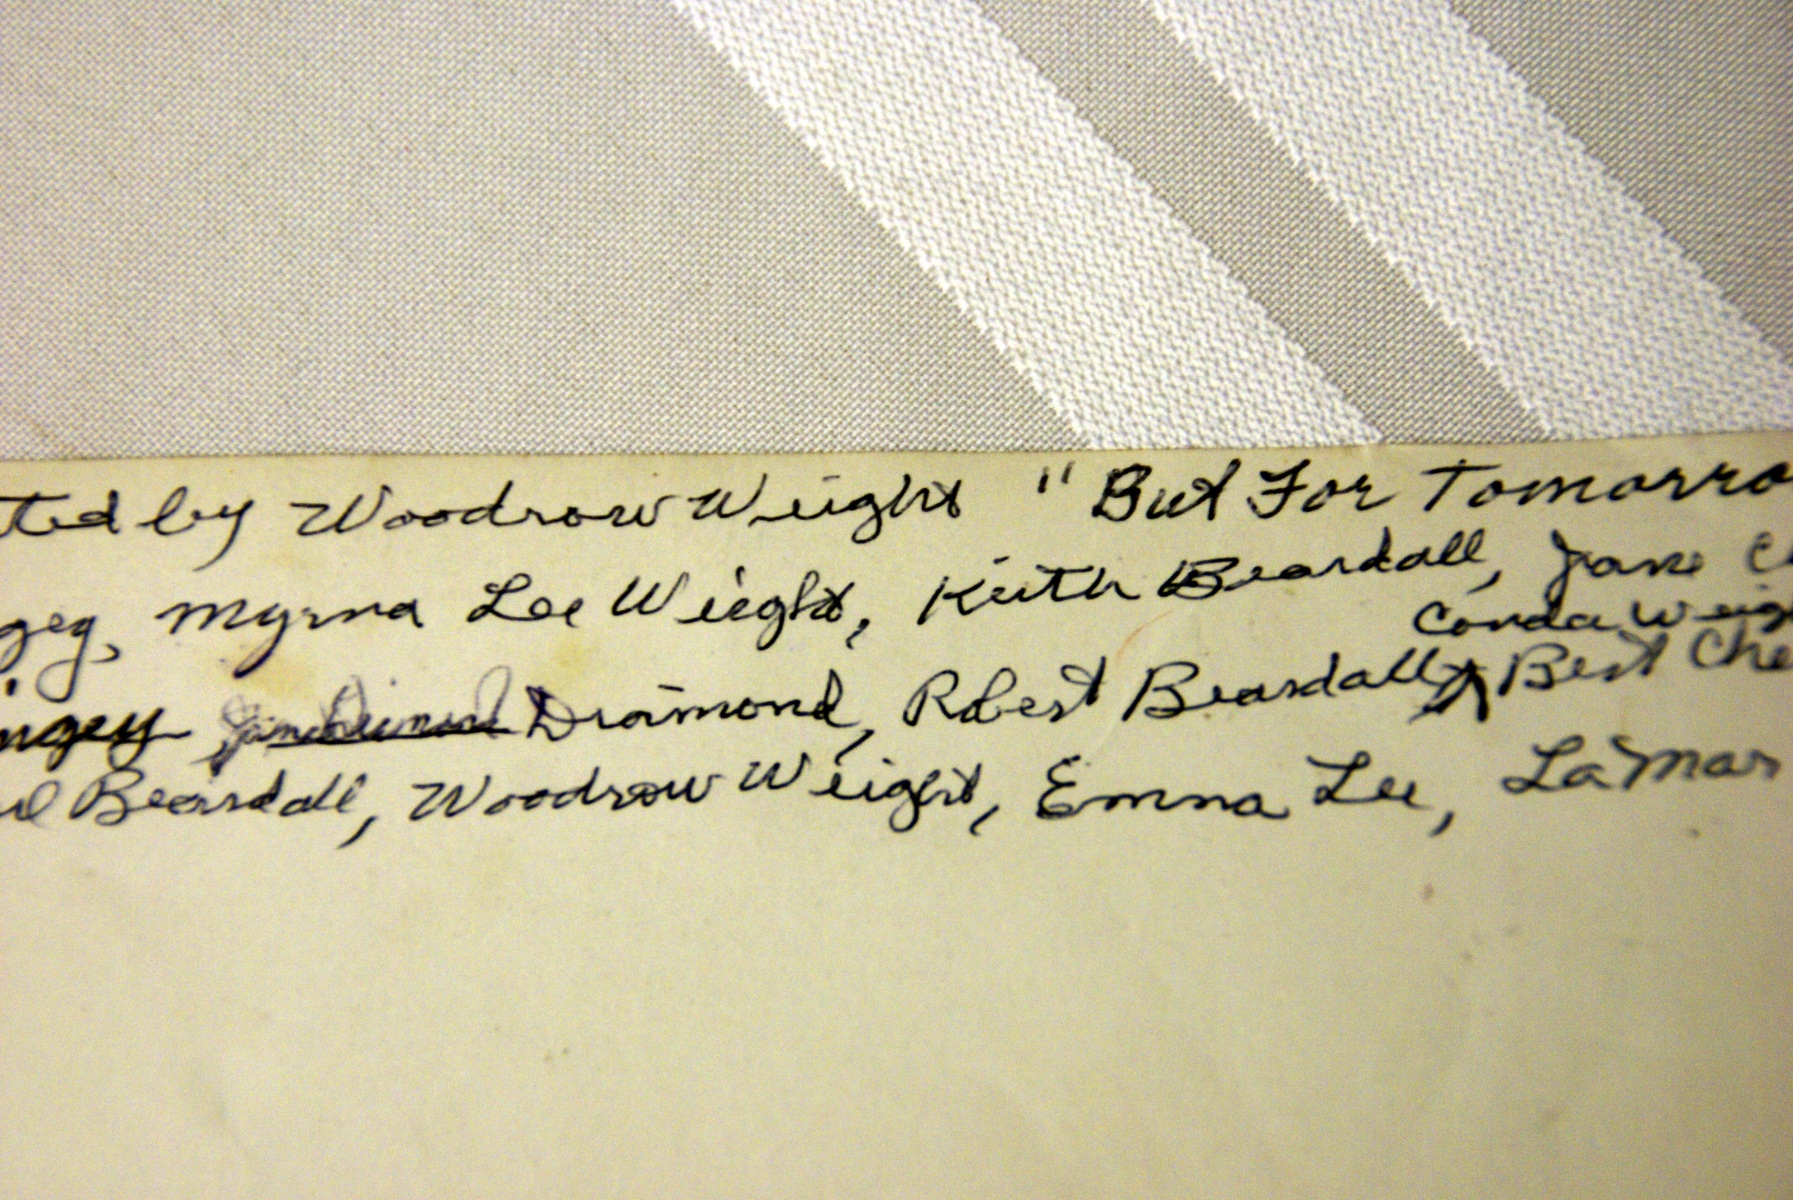 ted by Woodrow Weight "But For Tomorro
gey, Myrna Lee Weight, Keith Beardall, Jane C
Conda Weig
ngey Diamond, Robert Beardall, Bert Che
Beardall, Woodrow Weight, Emma Lee, LaMar